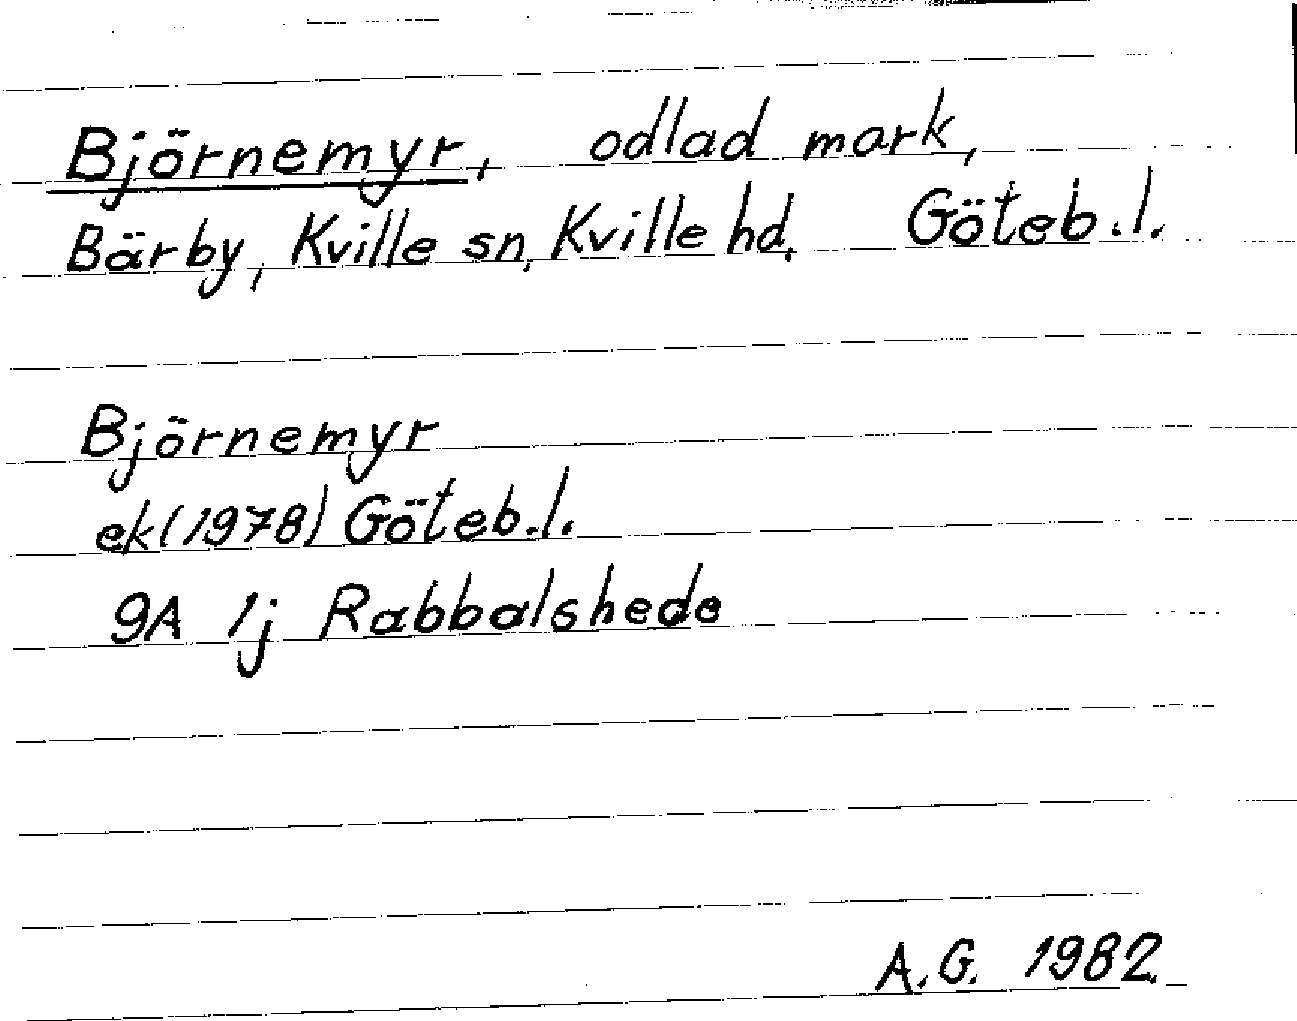 Björnemyr, odlad mark,
Bärby, Kville sn, Kville hd, Göteb.l.
Björnemyr
ek (1978) Göteb.l.
9A 1j Rabbalshede
A.G. 1982.